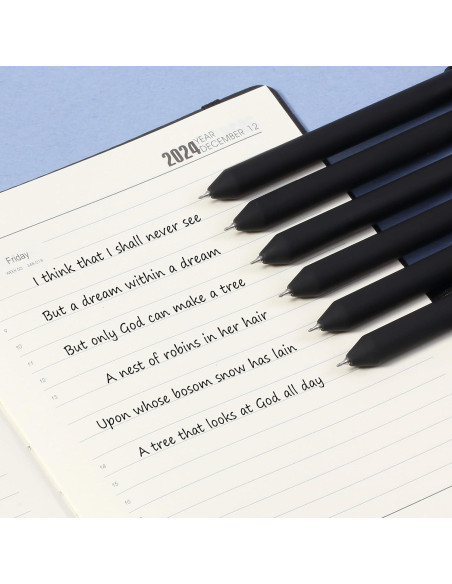 2024 YEAR
DECEMBER 12
Friday
I think that I shall never see
But a dream within a dream
But only God can make a tree
A nest of robins in her hair
Upon whose bosom snow has lain
A tree that looks at God all day
9
10
11
12
13
14
15
16